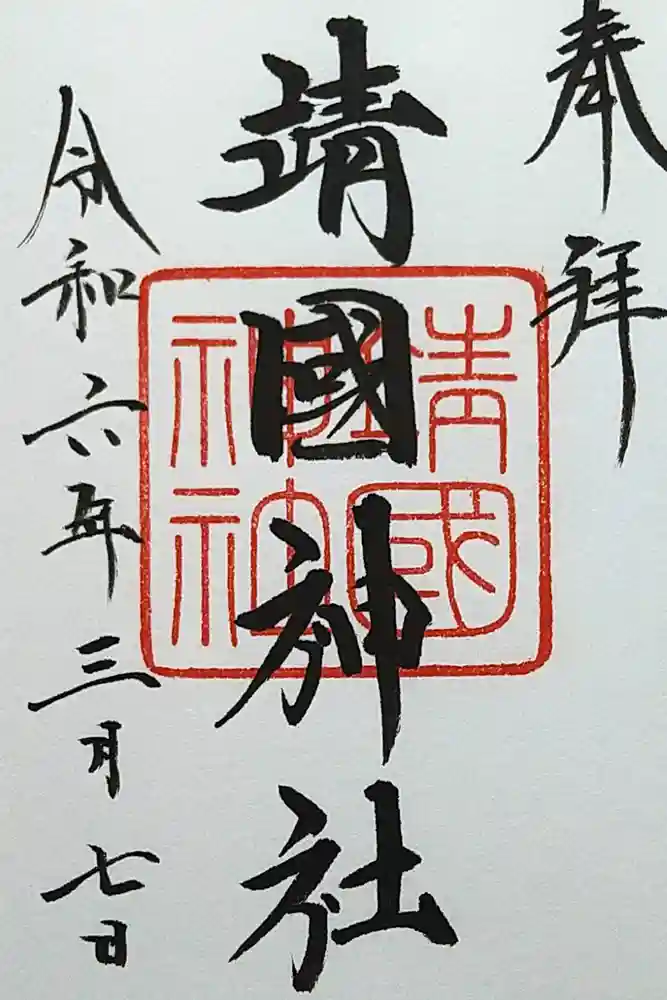 奉拝
靖國神社
靖國神社
令和六年三月七日